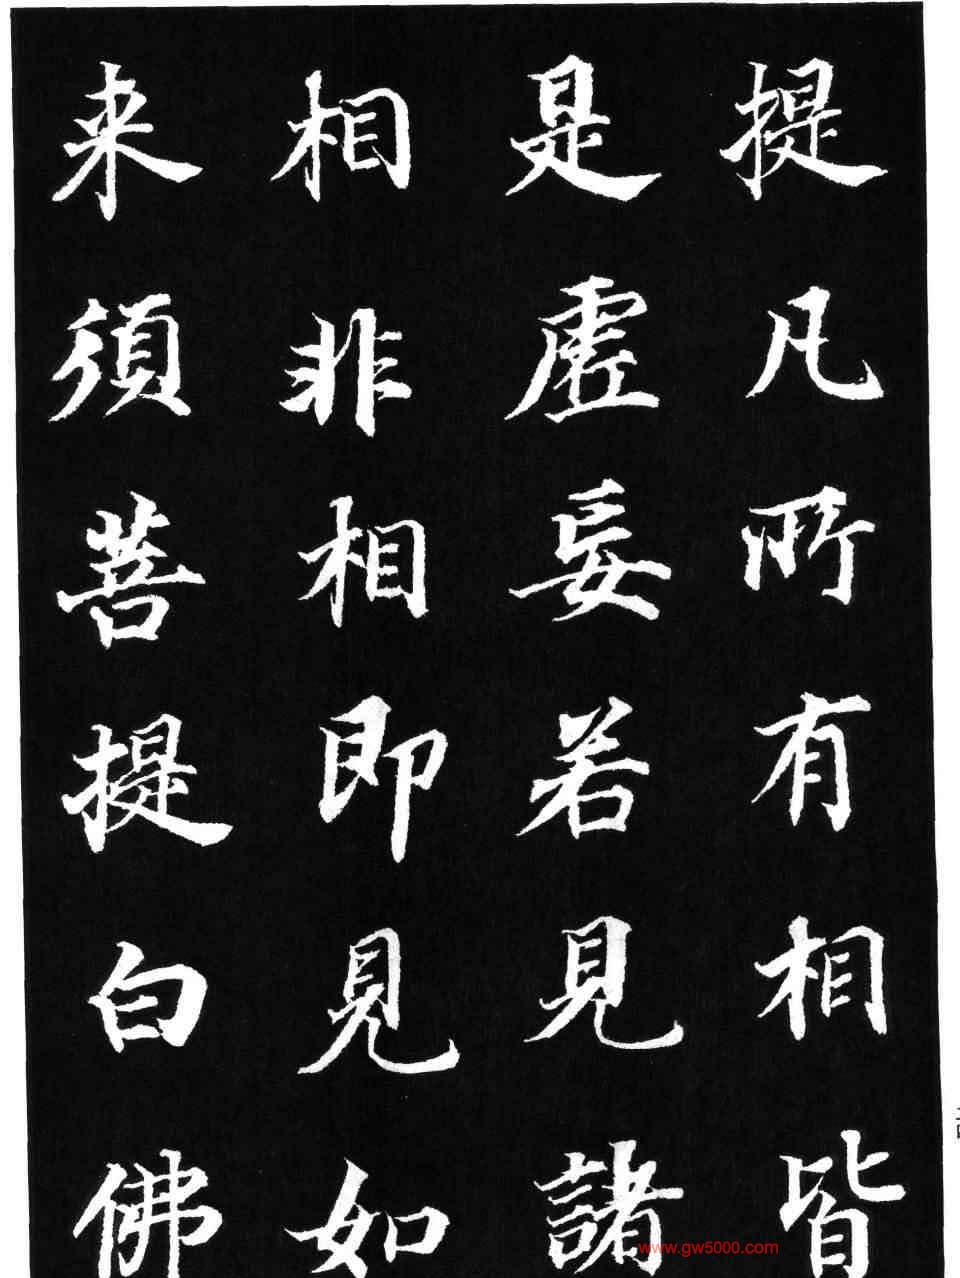 提凡所有相皆
是虛妄若見諸
相非相即見如
来須菩提白佛
www.gw5000.com